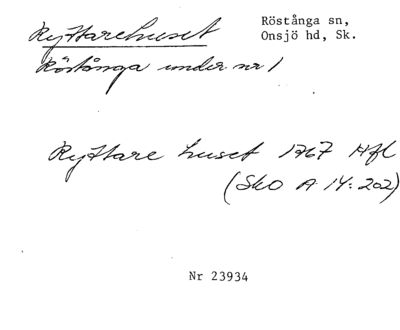 Ryttarehuset
Röstånga sn,
Onsjö hd, Sk.
Röstånga under nr 1
Ryttare huset 1767 Hfl
(Sko A 14: 202)
Nr 23934